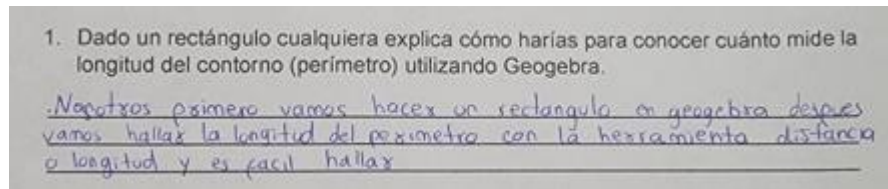 1. Dado un rectángulo cualquiera explica cómo harías para conocer cuánto mide la
longitud del contorno (perímetro) utilizando Geogebra.
.Nosotros primero vamos hacer un rectangulo en geogebra despues
vamos hallar la longitud del perimetro con la herramienta distancia
o longitud y es facil hallar